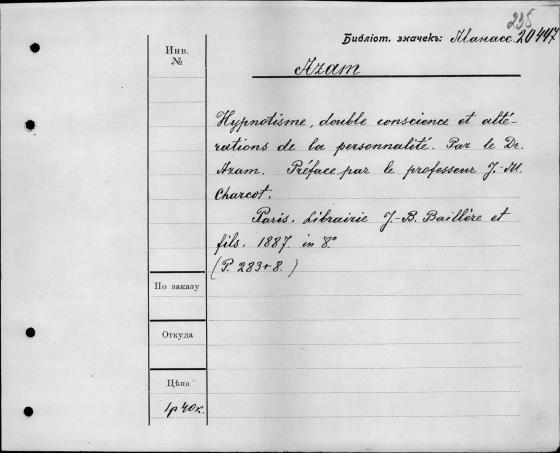 235
Библіот. значекъ: Манасс. 20447
Инв.
№
Azam
Hypnotisme, double conscience et alté-
rations de la personnalité. Par le Dr.
Azam. Préface par le professeur J.-M.
Charcot.
Paris. Librairie J.-B. Baillère et
fils. 1887. in 8°
(P. 283+8.)
По заказу
Откуда
Цѣна
1р 40к.